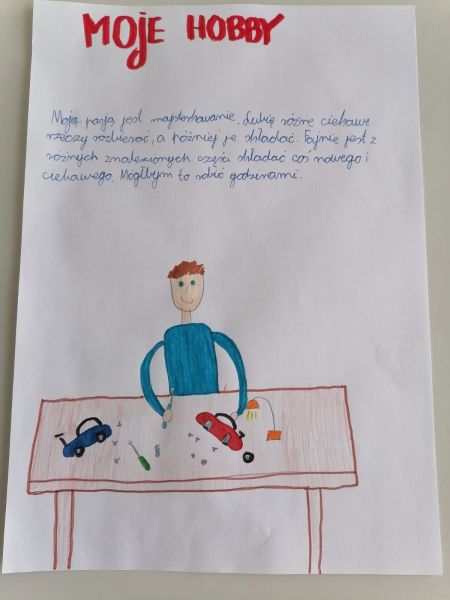 MOJE HOBBY
Moją pasją jest majsterkowanie. Lubię różne ciekawe
rzeczy rozbierać, a później je składać. Fajnie jest z
różnych znalezionych części składać coś nowego i
ciekawego. Mógłbym to robić godzinami.